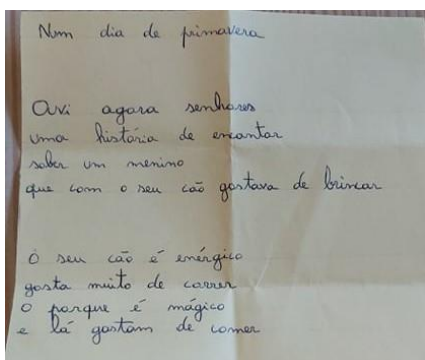 Num dia de primavera
Ouvi agora senhores
uma história de encantar
sobre um menino
que com o seu cão gostava de brincar
O seu cão é enérgico
gosta muito de correr
o parque é mágico
e lá gostam de comer